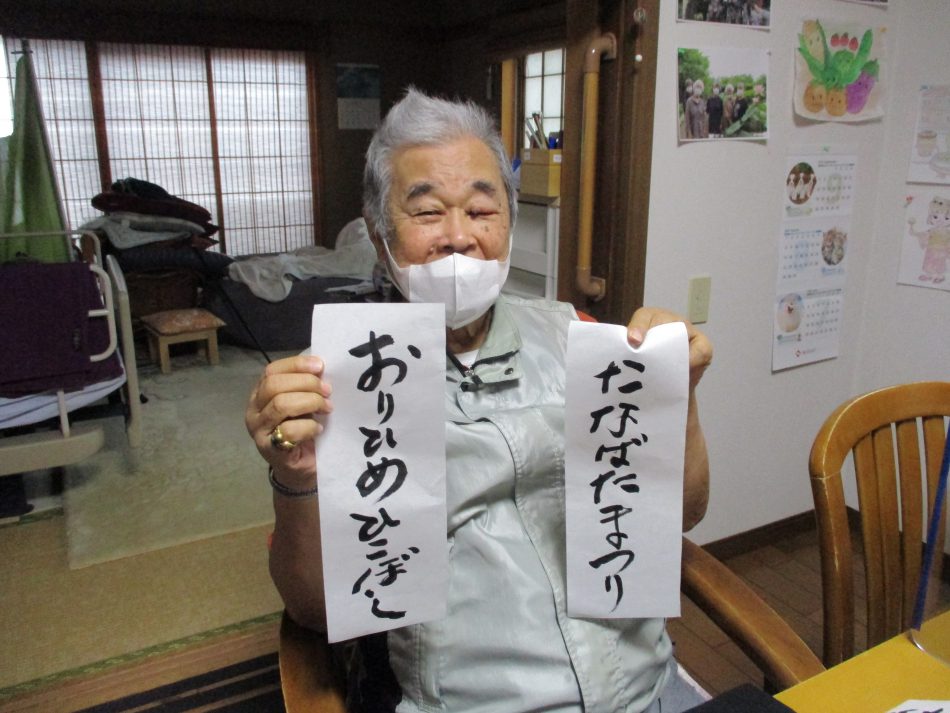 たなばたまつり
おりひめひこぼし